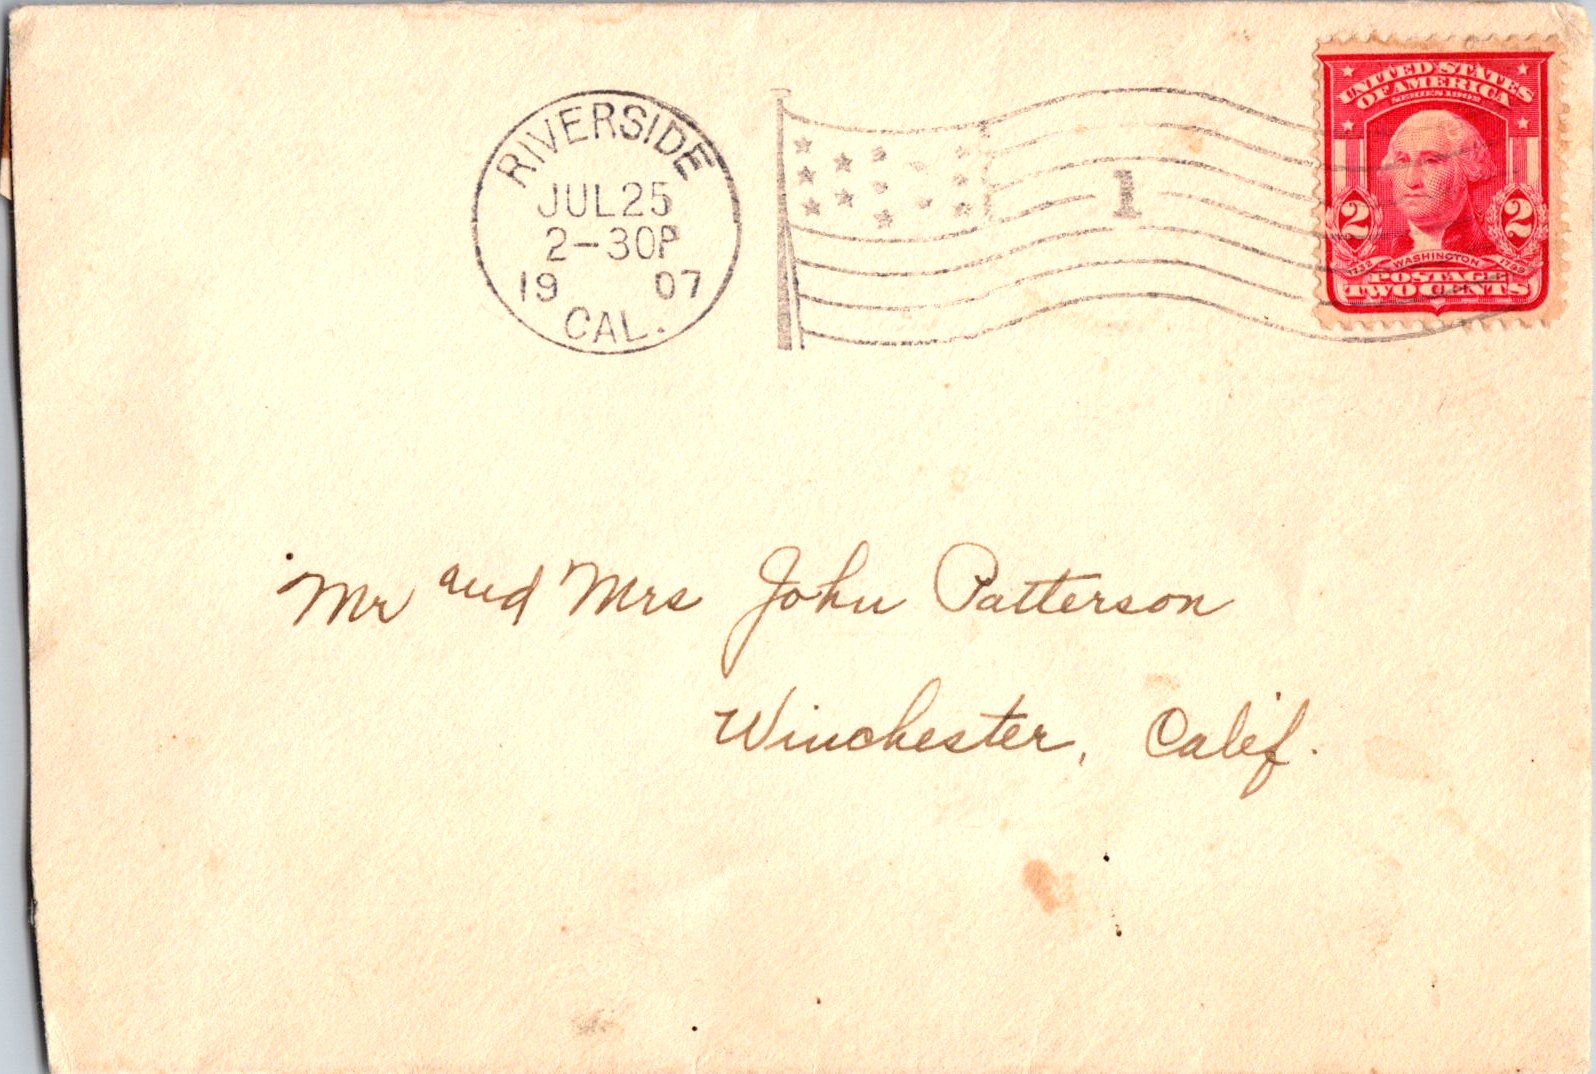 RIVERSIDE
JUL 25
2-30P
19 07
CAL.
1
UNITED STATES
OF AMERICA
SERIES 1902
2 2
1732 WASHINGTON 1799
POSTAGE
TWO CENTS
Mr and Mrs John Patterson
Winchester, Calif.